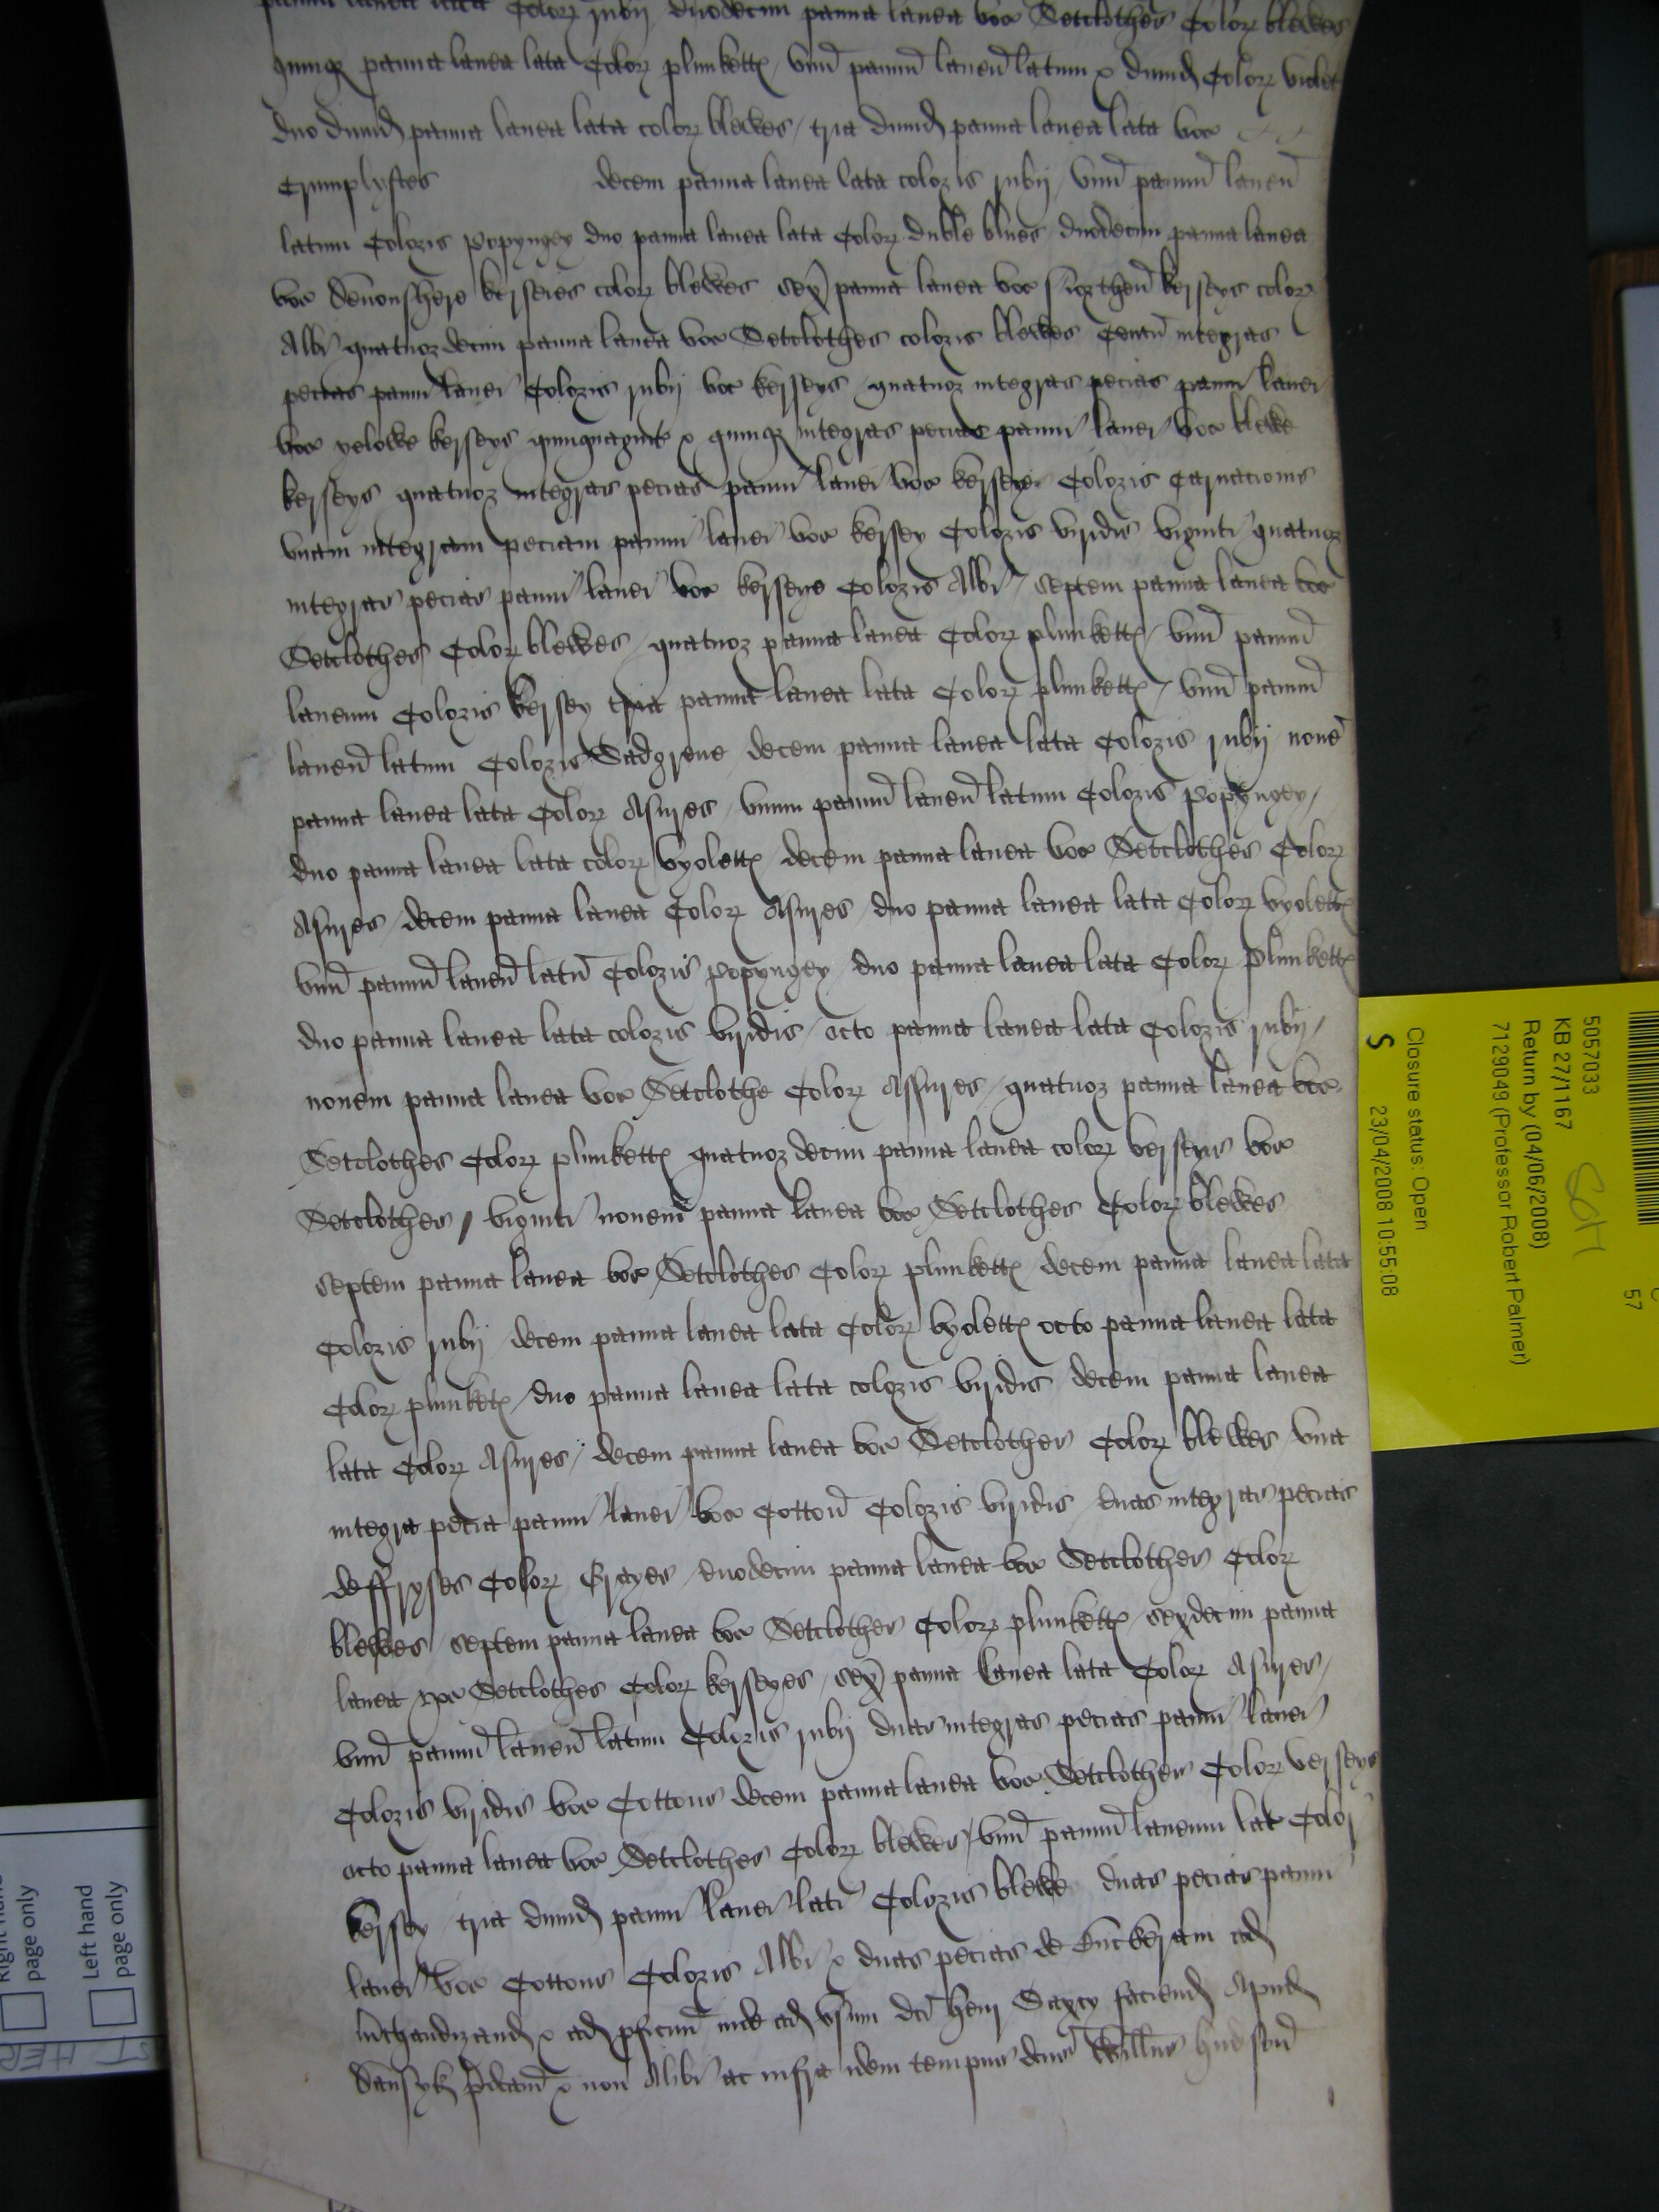 panna lanea lata Colorʒ rubij duodecim panna lanea voc Setclothes Colorʒ blewes
quinqʒ panna lanea lata Colorʒ plunkettꝭ / vnu' pannu' laneu' latum & dimid Colorʒ violet
duo dimid panna lanea lata colorʒ blewes / tria dimid panna lanea lata voc
Crumplystes decem panna lanea lata coloris rubij / vnu' pannu' laneu'
latum Coloris Popyngey duo panna lanea lata Colorʒ duble blues / duodecim panna lanea
voc Devonshere kerseies colorʒ blewes sex panna lanea voc Northen' kerseys colorʒ
Albi quatuordecim panna lanea voc Setclothes coloris blewes Centu' integras
pecias panni lanei Coloris rubij voc kerseys / quatuor integras pecias panni lanei
voc yelowe kerseys quinquagint' & quinqʒ integras pecias panni lanei voc blewe
kerseys quatuor integras pecias panni lanei voc kerseys Coloris Carnacionis
vnam integram peciam panni lanei voc kersey Coloris viridis viginti quatuor
integras pecias panni lanei voc kerseys Coloris Albi / septem panna lanea voc
Setclothes Colorʒ blewes / quatuor panna lanea Colorʒ plunkettꝭ / vnu' pannu'
laneum Coloris kersey tria panna lanea lata Colorʒ plunkettꝭ / vnu' pannu'
laneu' latum Coloris Sadgrene decem panna lanea lata Coloris rubij nove'
panna lanea lata Colorʒ Asures / vnum pannu' laneu' latum Coloris Popyngey /
duo panna lanea lata colorʒ vyolettꝭ / decem panna lanea voc Setclothes Colorʒ
Asures / decem panna lanea Colorʒ Asures / duo panna lanea lata Colorʒ vyolettꝭ
vnu' pannu' laneu' latu' Coloris Popyngey / duo panna lanea lata Colorʒ Plunkettꝭ
duo panna lanea lata coloris viridis / octo panna lanea lata Coloris rubij /
novem panna lanea voc Setclothe Colorʒ Assures / quatuor panna lanea voc
Setclothes Colorʒ plunkettꝭ quatuordecim panna lanea colorʒ verseys voc
Setclothes / viginti novem panna lanea voc Setclothes Colorʒ blewes
septem panna lanea voc Setclothes Colorʒ plunkettꝭ decem panna lanea lata
Coloris rubij decem panna lanea lata Colorʒ vyolettꝭ octo panna lanea lata
Colorʒ plunketꝭ / duo panna lanea lata coloris viridis decem panna lanea
lata Colorʒ Asures / decem panna lanea voc Setclothes Colorʒ blewes / vna
integra pecia panni lanei voc Cotton' Coloris viridis duas integras pecias
de ffryses Colorʒ Grayes / duodecim panna lanea voc Setclothes Colorʒ
blewes / septem panna lanea voc Setclothes Colorʒ plunkettꝭ / sexdecim panna
lanea voc Setclothes Colorʒ kerseyes / sex panna lanea lata Colorʒ Asures /
vnu' pannu' laneu' latum Coloris rubij duas integras pecias panni lanei
Coloris viridis voc Cottons decem panna lanea voc Setclothes Colorʒ verseys
octo panna lanea voc Setclothes Colorʒ blewes / vnu' pannu' laneum lat' Color'
kersey tria dimid panni lanei lati Coloris blewe duas pecias panni
lanei voc Cottons Coloris Albi & duas pecias de Buckeram ad
m'chandizand & ad p'ficuu' inde ad vsum d'ci' Henr Saxcy faciend Apud
Dansyk p'dcam' & non Alibi ac infra idem tempus denar' Will'us Hudson'
5057033
KB 27/1167
SCM
Return by (04/06/2008)
7129049 (Professor Robert Palmer)
Closure status: Open
S 23/04/2008 10:55:08
57
page only
Left hand
page only